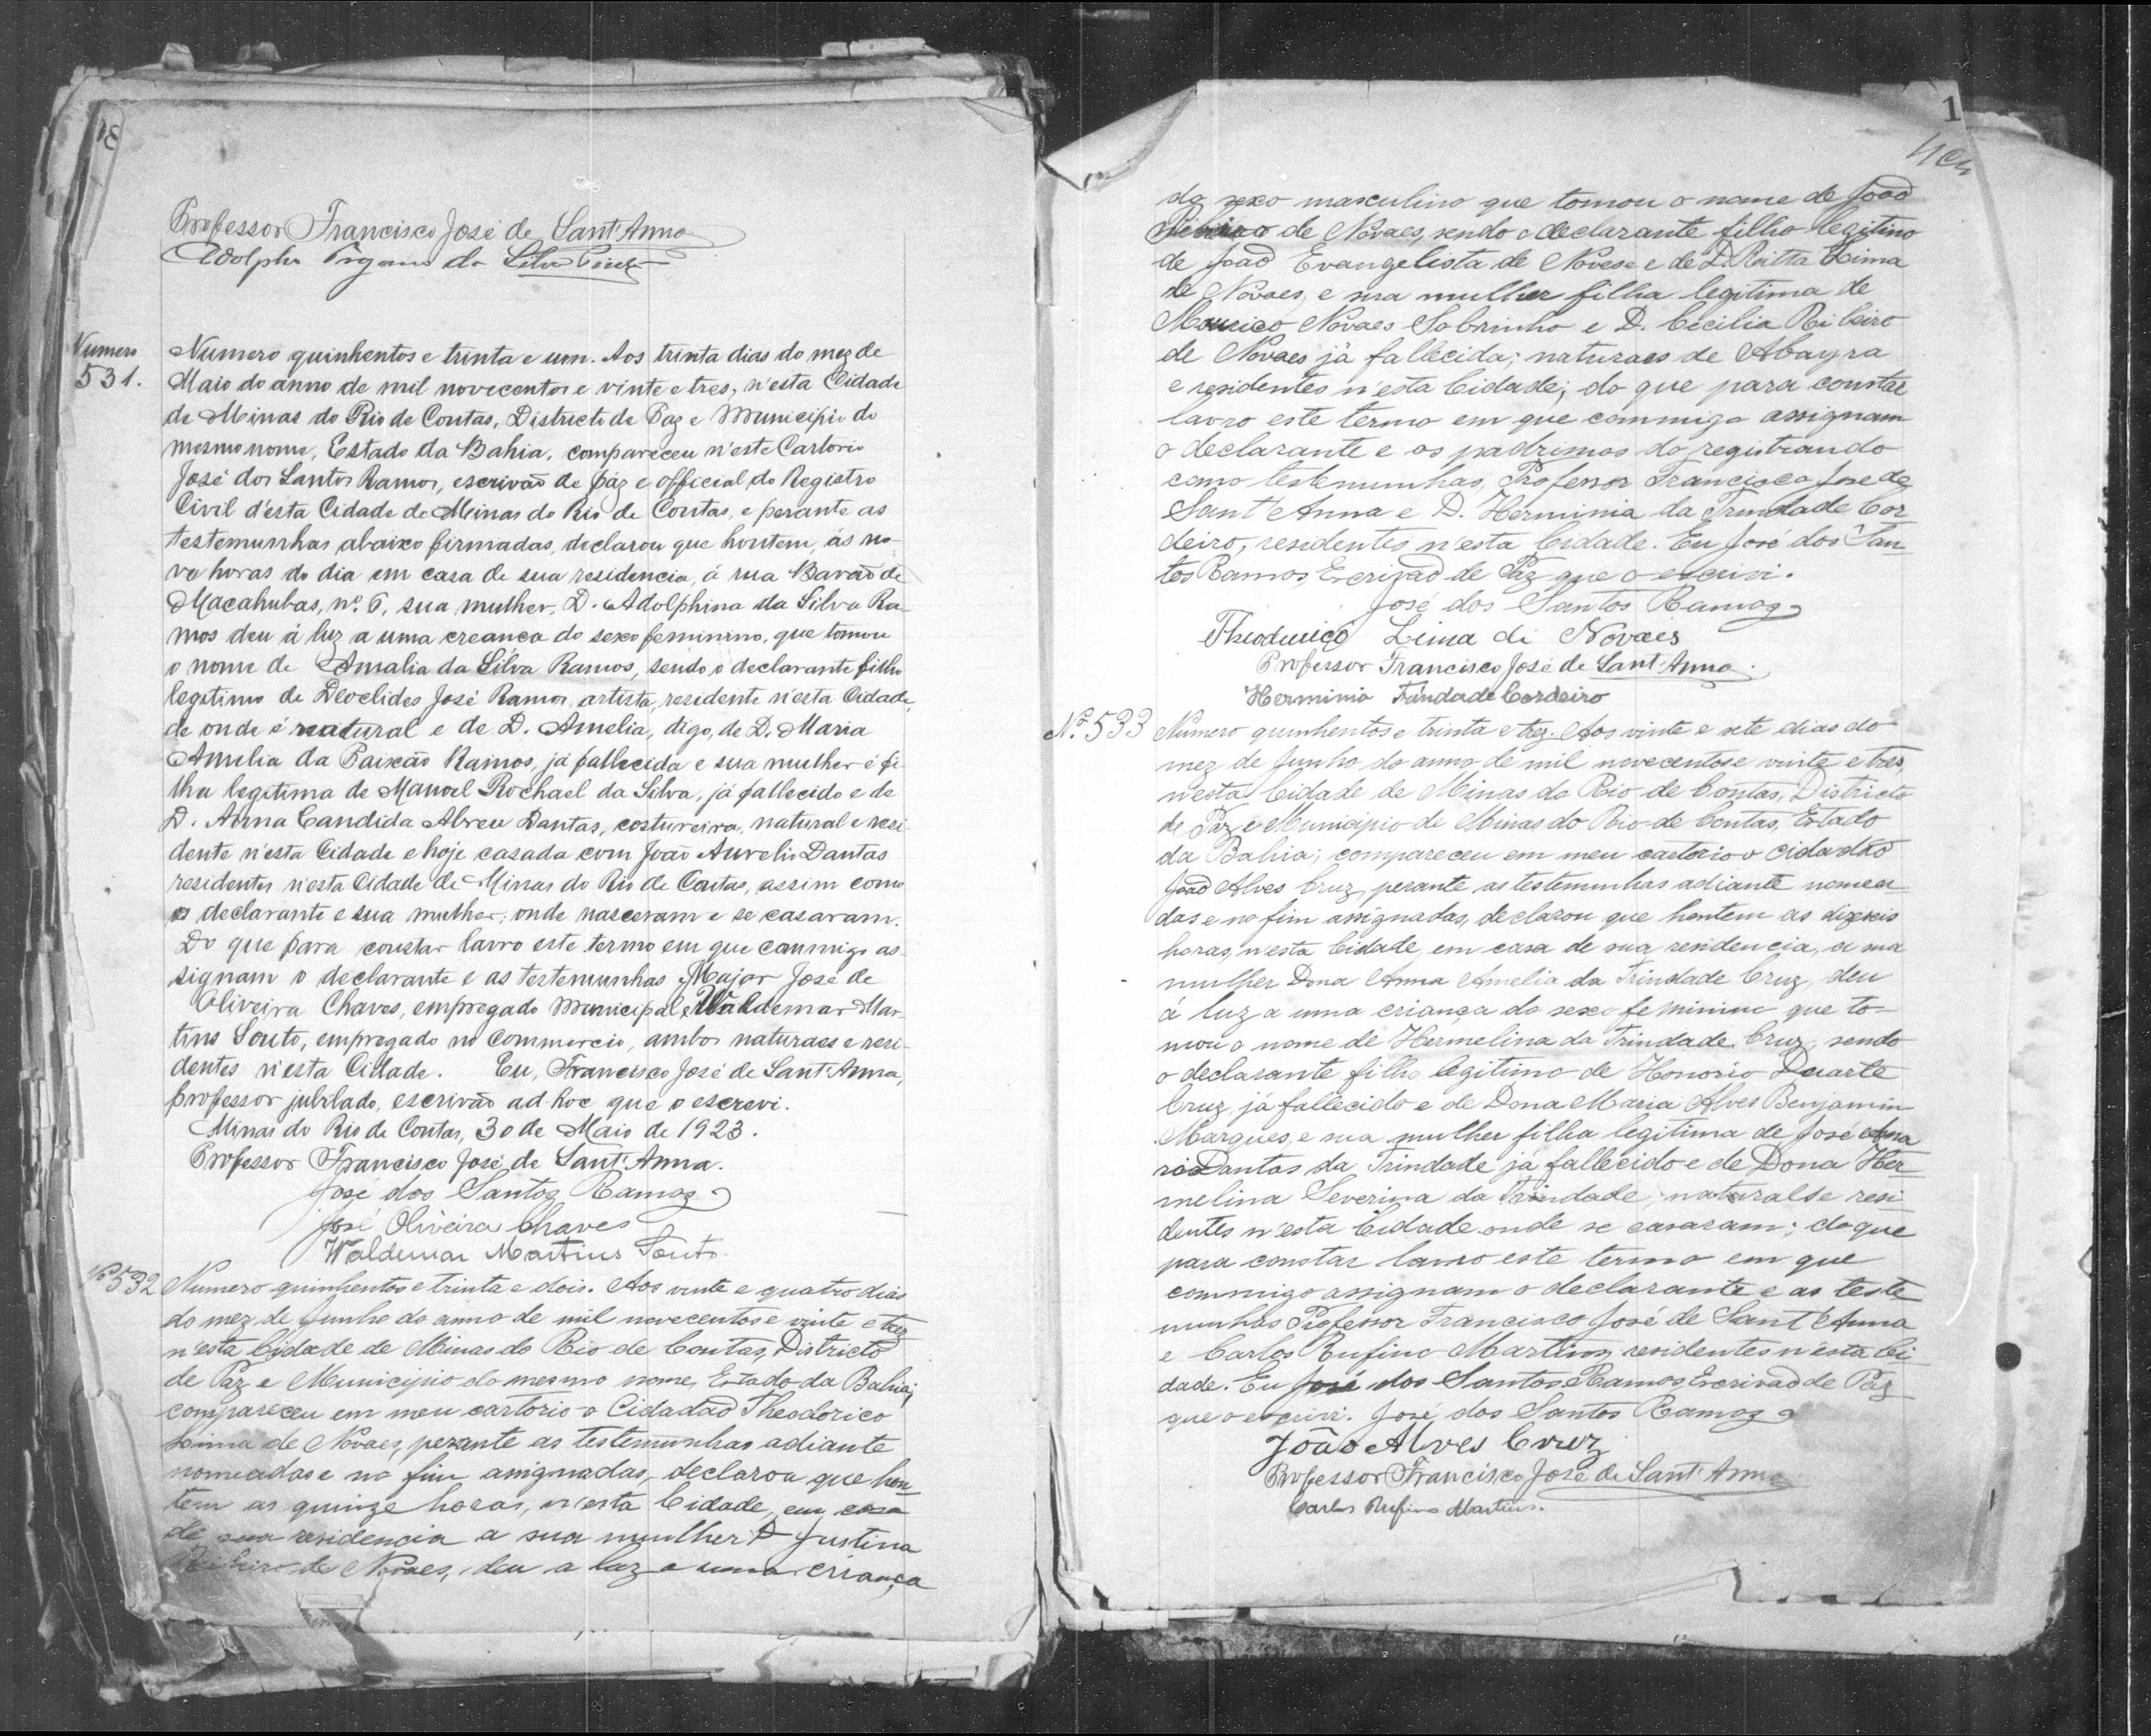 Professor Francisco José de Sant'Anna
Adolpho da Silva
Numero
531.
Numero quinhentos e trinta e um. Aos trinta dias do mez de
Maio do anno de mil novecentos e vinte e tres, n'esta Cidade
de Minas do Rio de Contas, Districto de Paz e Municipio do
mesmo nome, Estado da Bahia, compareceu n'este Cartorio
José dos Santos Ramos, escrivão de páz e official do Registro
Civil d'esta Cidade de Minas do Rio de Contas, e perante as
testemunhas abaixo firmadas, declarou que hontem, ás no-
ve horas do dia em casa de sua residencia, á rua Barão de
Macahubas, nº. 6, sua mulher, D. Adolphina da Silva Ra-
mos deu á luz a uma creança do sexo feminino, que tomou
o nome de Amalia da Silva Ramos, sendo o declarante filho
legitimo de Deoclides José Ramos, artista, residente n'esta Cidade,
de onde é natural e de D. Amelia, digo, de D. Maria
Amelia da Paixão Ramos, já fallecida e sua mulher é fi-
lha legitima de Manoel Rochael da Silva, já fallecido e de
D. Anna Candida Abreu Dantas, costureira, natural e resi-
dente n'esta Cidade e hoje casada com João Aurelio Dantas
residentes n'esta Cidade de Minas do Rio de Contas, assim como
o declarante e sua mulher, onde nasceram e se casaram.
Do que para constar lavro este termo em que commigo as-
signam o declarante e as testemunhas Major José de
Oliveira Chaves, empregado municipal e Waldemar Mar-
tins Souto, empregado no commercio, ambos naturaes e resi-
dentes n'esta Cidade. Eu, Francisco José de Sant'Anna,
professor jubilado, escrivão ad-hoc que o escrevi.
Minas do Rio de Contas, 30 de Maio de 1923.
Professor Francisco José de Sant'Anna.
José dos Santos Ramos
José Oliveira Chaves
Waldemar Martins Souto
Nº 532
Numero quinhentos e trinta e dois. Aos vinte e quatro dias
do mez de Junho do anno de mil novecentos e vinte e trez
n'esta Cidade de Minas do Rio de Contas, Districto
de Paz e Municipio do mesmo nome, Estado da Bahia;
compareceu em meu cartorio o Cidadão Theodorico
Lima de Novaes, perante as testemunhas adiante
nomeadas e no fim assignadas, declarou que hon
tem as quinze horas, n'esta Cidade, em casa
de sua residencia a sua mulher D Justina
Ribeiro de Novaes, deu a luz a uma criança
1
do sexo masculino que tomou o nome de João
Ribeiro de Novaes, sendo o declarante filho legitimo
de João Evangelista de Novese e de D. Ritta Lima
de Novaes, e sua mulher filha legitima de
Mourico Novaes Sobrinho e D. Cicilia Ribeiro
de Novaes já fallecida; naturaes de Abayra
e residentes n'esta Cidade; do que para constar
lavro este termo em que commigo assignam
o declarante e os padrinhos do registrando
como testemunhas, Professor Francisco José de
Sant'Anna e D. Herminia da Trindade Cor
deiro, residentes n'esta Cidade. Eu José dos San
tos Ramos, Escrivão de Paz que o escrivi.
José dos Santos Ramos
Theodorico Lima di Novaes
Professor Francisco José de Sant'Anna.
Herminia Trindade Cordeiro
Nº. 533
Numero quinhentos e trinta e trez. Aos vinte e sete dias do
mez de Junho do anno de mil novecentos e vinte e tres,
n'esta Cidade de Minas do Rio de Contas, Districto
de Paz e Municipio de Minas do Rio de Contas, Estado
da Bahia; compareceu em meu cartorio o cidadão
João Alves Cruz, perante as testemunhas adiante nomea
das e no fim assignadas, declarou que hontem as dizeseis
horas, n'esta Cidade, em casa de sua residencia, a sua
mulher Dona Anna Amelia da Trindade Cruz, deu
á luz a uma criança do sexo feminino que to-
mou o nome de Hermelina da Trindade Cruz, sendo
o declarante filho legitimo de Honorio Duarte
Cruz, já fallecido e de Dona Maria Alves Benjamin
Marques, e sua mulher filha legitima de José
Dantas da Trindade já fallecido e de Dona Her
melina Severina da Trindade, naturalse resi
dentes n'esta Cidade onde se casaram; do que
para constar lavro este termo em que
commigo assignam o declarante e as teste
munhas Professor Francisco José de Sant'Anna
e Carlos Rufino Martins, residentes n'esta Ci
dade. Eu José dos Santos Ramos Escrivão de Paz
que o escrivi. José dos Santos Ramos
João Alves Cruz
Professor Francisco José de Sant'Anna
Carlos Rufino Martins.